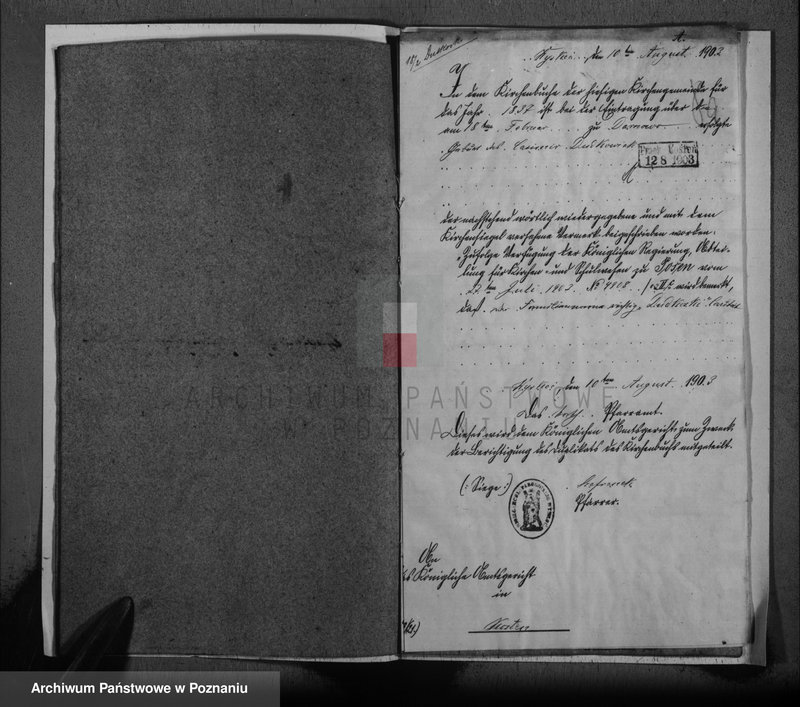 Wyskoć, den 10ten August 1903
In dem Kirchenbuche der hiesigen Kirchengemeinde für
das Jahr 1837 ist bei der Eintragung über die
am 18ten Februar zu erfolgte
Geburt des Casimir
12 8 1903
der nachstehend wörtlich wiedergegebene und mit dem
Kirchensiegel versehene Vermerk beigeschrieben worden:
"Zufolge Verfügung der Königlichen Regierung, Abtei-
lung für Kirchen- und Schulwesen zu Posen vom
22ten Juli 1903 No wird bemerkt,
daß der Familienname richtig lautet
Wyskoć, den 10ten August 1903
Das kath. Pfarramt.
Dieses wird dem Königlichen Amtsgericht zum Zweck
der Berichtigung des Duplikats des Kirchenbuchs mitgeteilt.
(: Siegel :)
Pfarrer.
An
das Königliche Amtsgericht
in
Kosten
ARCHIWUM PAŃSTWOWE
W POZNANIU
Archiwum Państwowe w Poznaniu